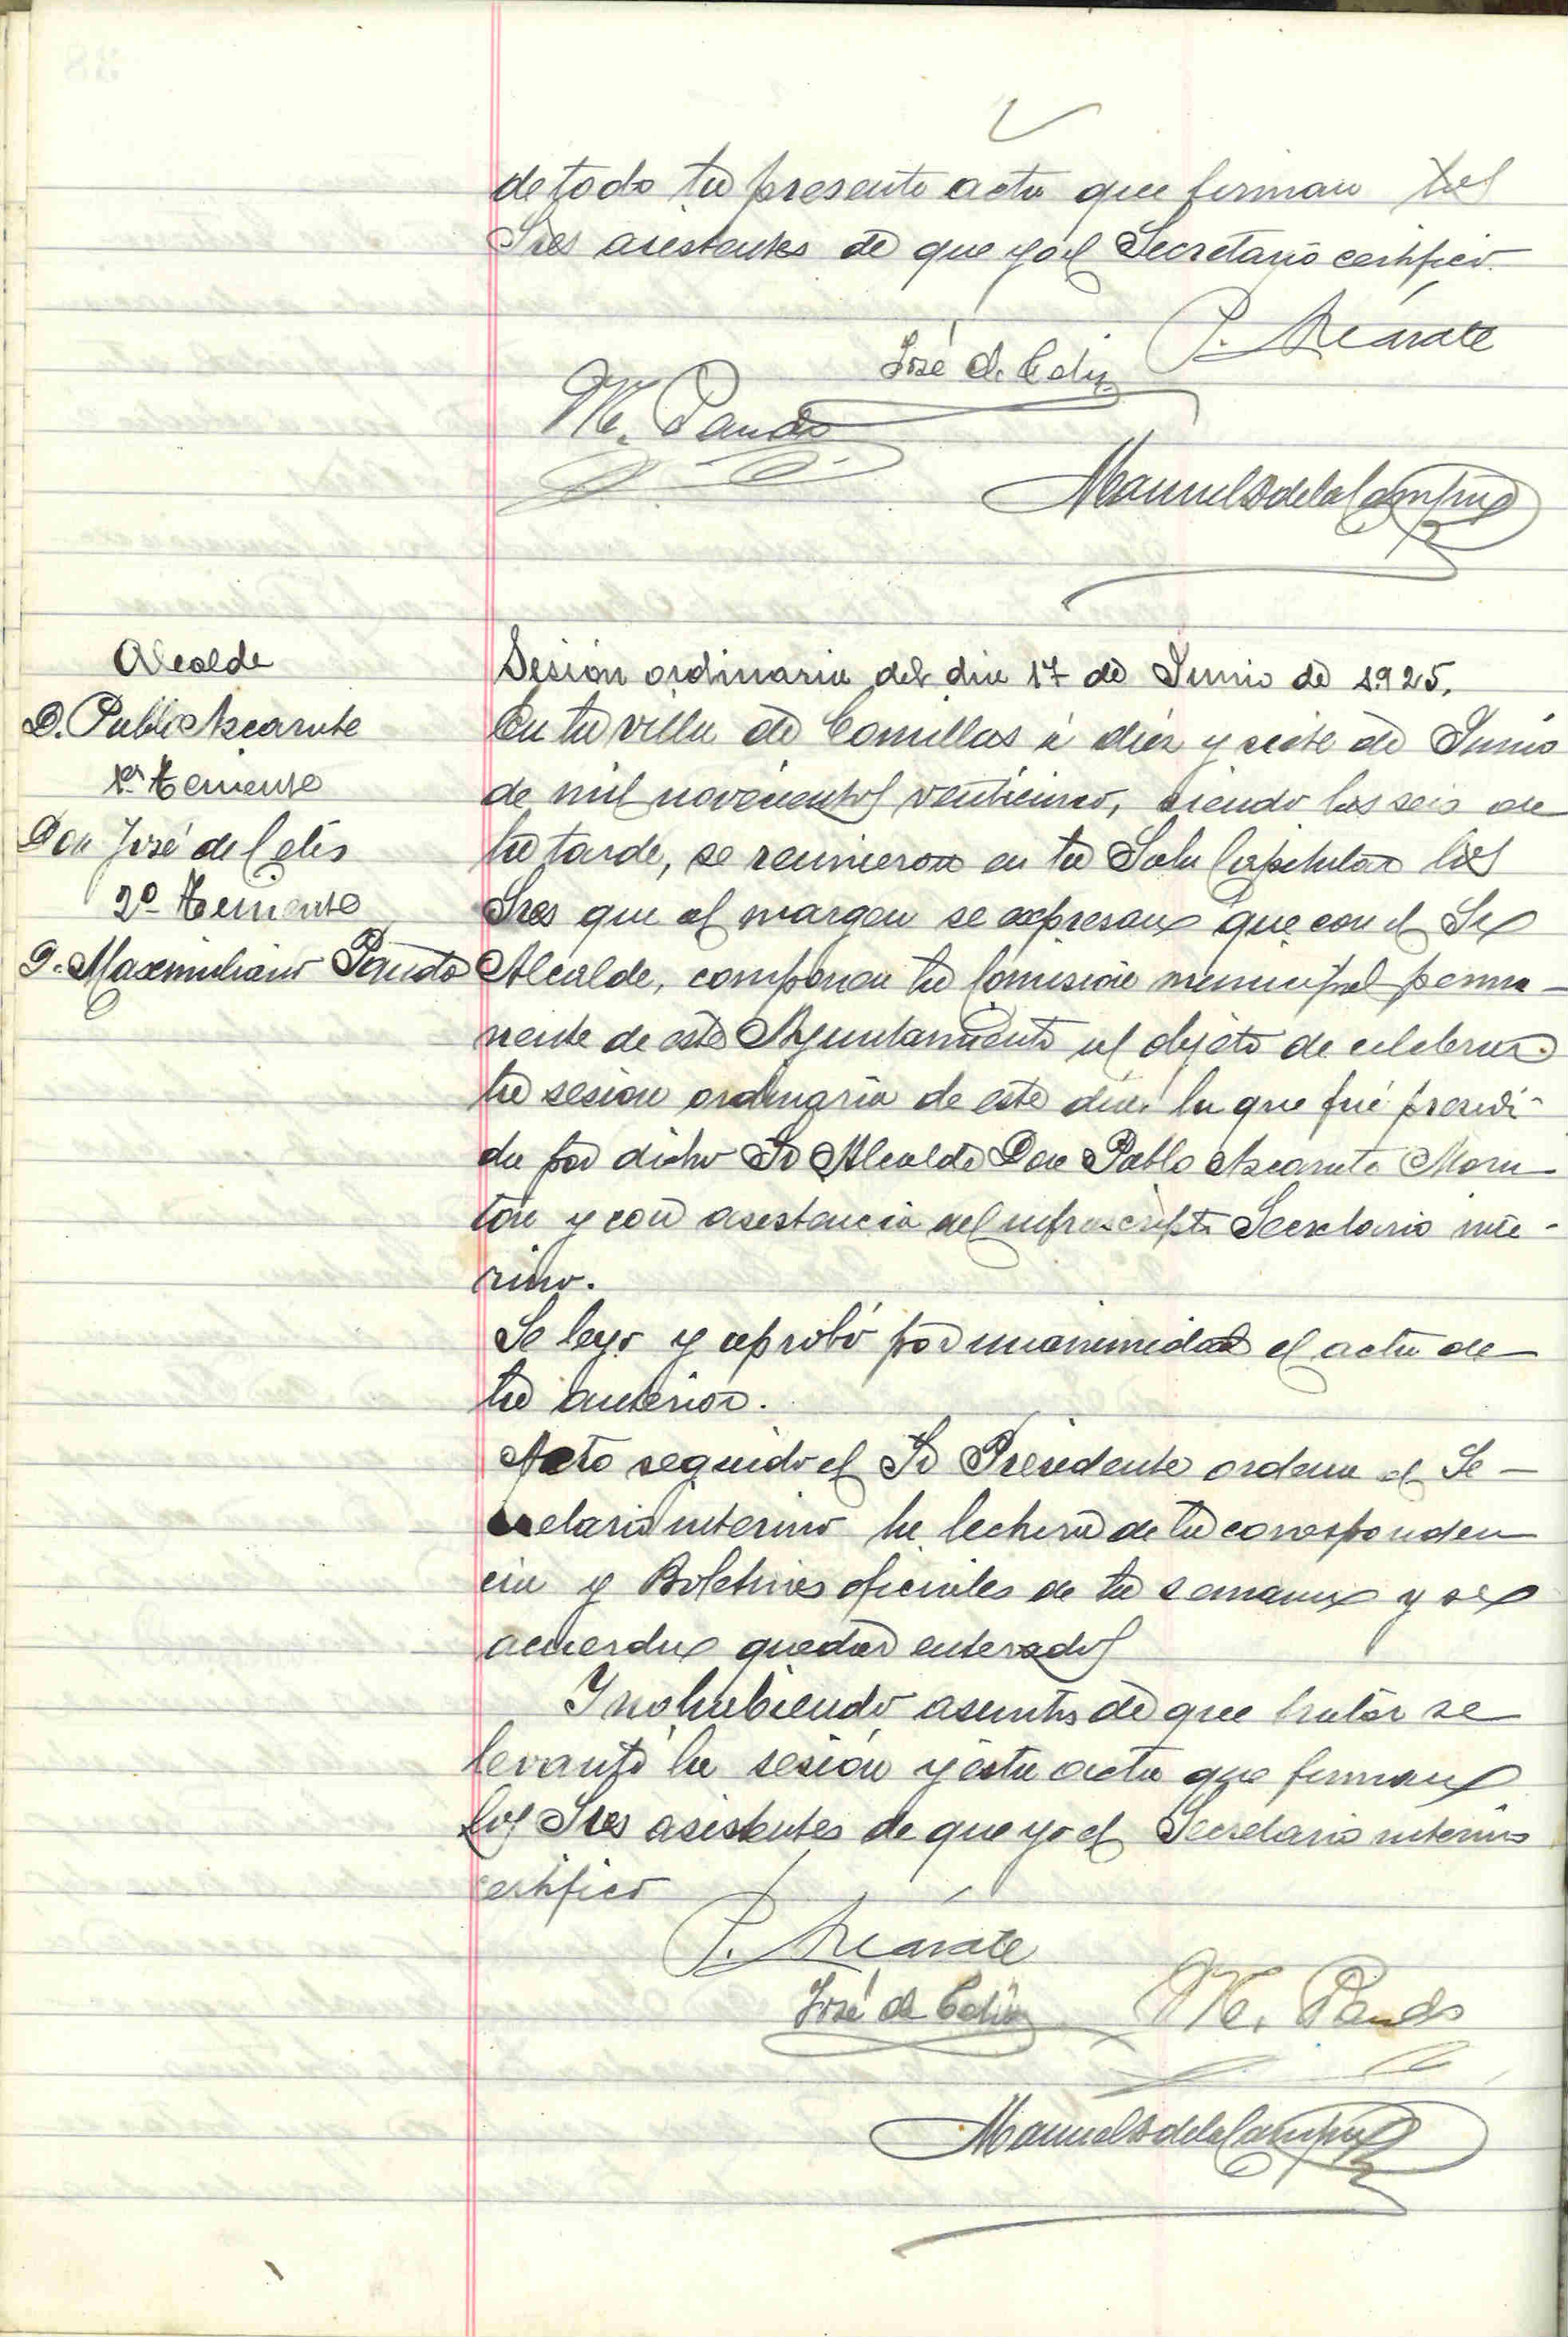 de todo la presente acta que firman los
Sres asistentes de que yo el Secretario certifico.
P. Azcárate
José de Celis
M. Pando
Manuel S de la Campa
Alcalde
D. Pablo Azcarate
1er Teniente
Don José de Celis
2º Teniente
D. Maximiliano Pando
Sesión ordinaria del dia 17 de Junio de 1925.
En la villa de Comillas á diez y siete de Junio
de mil novecientos venticinco, siendo las seis de
la tarde, se reunieron en la Sala Capitular los
Sres que al margen se expresan que con el Sr
Alcalde, componen la Comisión municipal perma-
nente de este Ayuntamiento al objeto de celebrar
la sesion ordinaria de este dia la que fué presidi-
da por dicho Sr Alcalde Don Pablo Azcarate
y con asistencia del infrascripto Secretario inte-
rino.
Se leyo y aprobó por unanimidad el acta de
la anterior.
Acto seguido el Sr Presidente ordena al Se-
cretario interino la lectura de la corresponden
cia y Boletines oficiales de la semana y se
acuerda quedar enterados
Y no habiendo asuntos de que tratar se
levantó la sesión y ésta acta que firman
los Sres asistentes de que yo el Secretario interino
certifico
P. Azcárate
José de Celis M. Pando
Manuel S de la Campa